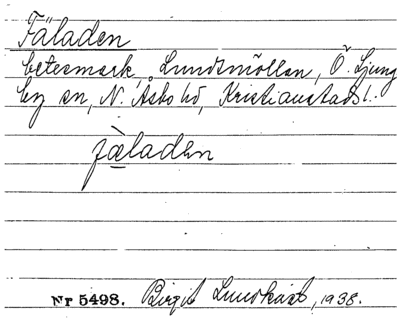 Fäladen
betesmark, Lundsmöllan, Ö. Ljung
by sn, N. Åsbo hd, Kristianstads l.
fæladen
Nr 5498. Birgit Lundkvist, 1938.